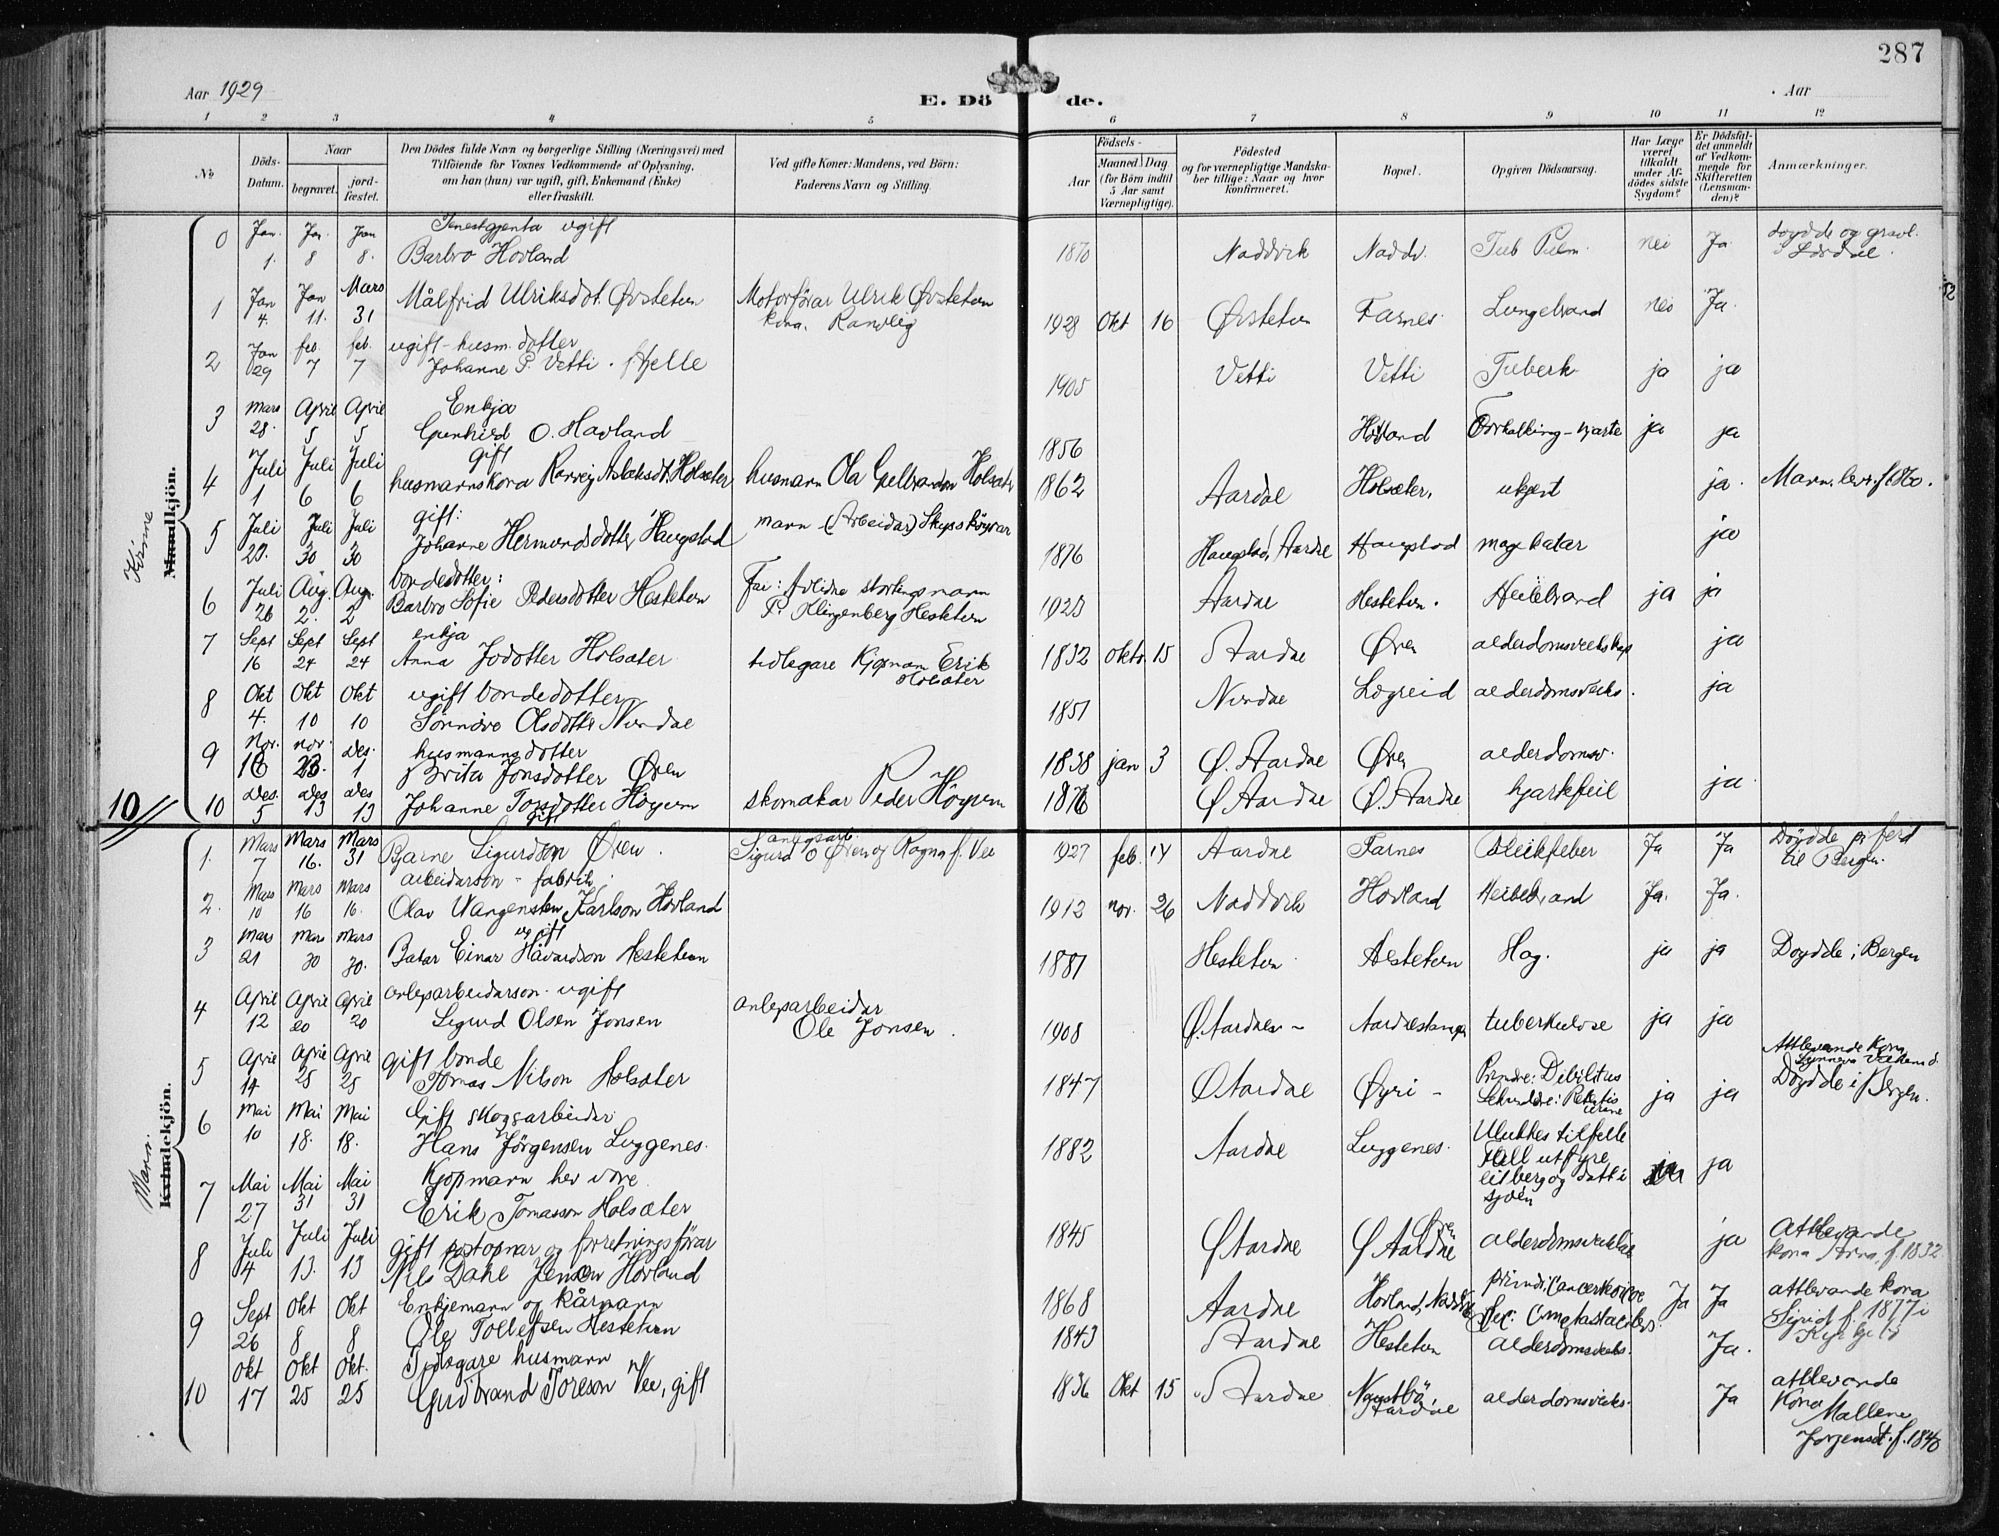 287
Aar 1929
E. Dö de.
Aar
1 2 3 4 5 6 7 8 9 10 11 12
No
Döds-Datum.
Naar
begravet.
jord-fæstet.
Den Dödes fulde Navn og borgerlige Stilling (Næringsvei) med
Tilföiende for Voxnes Vedkommende af Oplysning,
om han (hun) var ugift, gift, Enkemand (Enke)
eller fraskilt.
Ved gifte Koner: Mandens, ved Börn:
Faderens Navn og Stilling.
Födsels-
Aar
Maaned Dag
(for Börn indtil
5 Aar samt
Værnepligtige).
Födested
og for værnepligtige Mandska-
ber tillige: Naar og hvor
konfirmeret.
Bopæl.
Opgiven Dödsaarsag.
Har Læge
været
tilkaldt
under Af-
dödes sidste
Sygdom?
Er Dödsfal-
det anmeldt
af Vedkom-
mende for
Skifteretten
(Lensman-
den)?
Anmærkninger.
Kvinne
Mandkjön.
0 Jan. 1. Jan 8 Jan 8. Tenestgjenta ugift
Barbro Hovland 1870 Naddvik Naddv. Tub Pulm. nei Ja doydde og gravl. i Lærdal.
1 Jan 4. Jan 11. Mars 31 Målfrid Ulriksdot. Øvstetun Motorförar Ulrik Øvstetun
kona Ranveig 1928 Okt 16 Øvstetun Farnes Lungebrand nei Ja.
2 Jan 29 feb. 7 feb. 7 ugift - husm. dotter
Johanne P. Vetti . fjelle 1905 Vetti Vetti Tuberk ja ja
3 Mars 28. April 5 April 5 Enkja
Gunhild O. Hovland 1856 Hovland Forkalking - hjarte ja ja
4 Juli 1 Juli 6 Juli 6 gift
husmannskona Ranveig Aslaksdt. Holsæter husmann Ola Holsæter 1862 Aardal Holsæter. ukjent ja. Mann. lev. f. 1860.
5 Juli 29. Juli 30 Juli 30 gift:
Johanne Hermundsdotter Haugstad mann - (Arbeidar) 1876 Haugstad, Aardal Haugstad magekatar ja
6 Juli 26 Aug. 2. Aug. 2 bondedotter:
Barbro Sofie Pedersdotter Hestetun Far: Avlidne stortingsmann
P. Klingenberg Hestetun Aardal Hestetun. Heilebrand ja ja
7 Sept 16 Sept 24 Sept 24 enkja
Anna Jodotter Holsæter tidlegare Kjøpmann Erik
Holsæter 1832 okto. 15 Aardal Øren alderdomsveikskap ja
8 Okt 4. Okt 10 Okt 10 ugift bondedotter
Sønnøve Olsdotter Nundal 1851 Nundal Lægreid alderdomsveiks. ja
9 Nov. 18 nov. 23. des. 1 husmannsdotter
Brita Jonsdotter Øren 1838 jan 3 Ø. Aardal Øren alderdomsv.
10 des. 5 des 13 des 13 Johanne Torsdotter Höyum
gift skomakar Peder Höyum 1876 Ø Aardal Ø. Aardal hjartefeil ja
10
Mann.
Kvindekjön.
1. Mars 7 Mars 16. Mars 31 Bjarne Sigurdson Øren. anlegsarb.
Sigurd O Øren og Ragna f. Vee 1927 feb. 14 Aardal Farnes Ja Ja Döydde på ferd
til Bergen.
2. Mars 10 Mars 16 Mars 16. arbeidarson - fabrik
Olav Wangensten Karlson Hovland 1912 nov. 26 Naddvik Hovland Heilebrand Ja. Ja.
3 Mars 21 mars 30 mars 30. ugift
Bakar Einar Håvardson Hestetun 1881 Hestetun Hestetun Slag. ja ja Doydde i Bergen
4 April 12 April 20 April 20 anlegsarbeidarson - ugift
Sigurd Olsen Jonsen anlegsarbeidar
Ole Jonsen. 1908 Ø. Aardal - Aardalstangen tuberkulose ja ja
5 April 14 April 25 April 25 gift bonde
Tomas Nilson Holsæter 1847 Ø Aardal Øyri - ja ja Attlevande Kona
Döydde i Bergen.
6 Mai 10 Mai 18. Mai 18. Gift skogsarbeidar
Hans Jörgensen Luggenes. 1882 Aardal Luggenes. Ulukkes tilfelle
Fell utfyre
eit berg og datt i
sjöen ja ja
7 Mai 27 Mai 31 Mai 31 Kjøpmann
Erik Tomasson Holsæter 1845 Ø Aardal Øren
Ø Aardal alderdomsveikskap ja Attlevande
kona Anna, f. 1832.
8 Juli 4 Juli 13. Juli 13 gift postopnar og forretningsförar
Nils Dahl Jenson Hovland 1868 Aardal Hovland, Naddvik Ja Ja attlevande kona
Sigrid f. 1877 i
9 Sept 26 Okt 8 Okt 8 Enkjemann og kårmann
Ole Tollefsen Hestetun 1843 Aardal Hestetun alderdomsveiks. Ja.
10 Okt 17 Okt 25 Okt. 25 Tidlegare husmann
Gudbrand Toreson Vee, gift 1836 Okt 15 Aardal Naustbö,
Aardal alderdomsveiks. Ja attlevande
Kona
Mallene
Jorgensdt. f. 1840